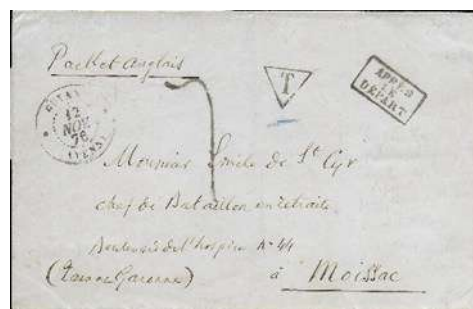 Packet Anglais
T
APRÈS
LE
DÉPART
GUYANE
12
NOV
76
Monsieur Emile de St Cyr
chef de Bataillon en retraite
Boulevard de l'hospice No 44
(Tarn et Garonne)
à Moissac